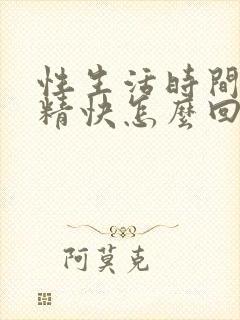 性生活時間
精快怎麼回
阿莫克